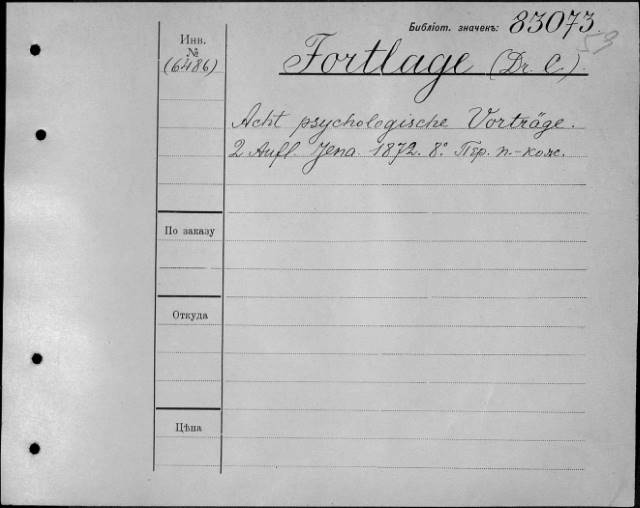 Библіот. значекъ: 83073.
59
Инв.
№
(6486)
Fortlage (Dr. C)
Acht psychologische Vorträge.
2 Aufl. Jena. 1872. 8º Пер. п.-кож.
По заказу
Откуда
Цѣна